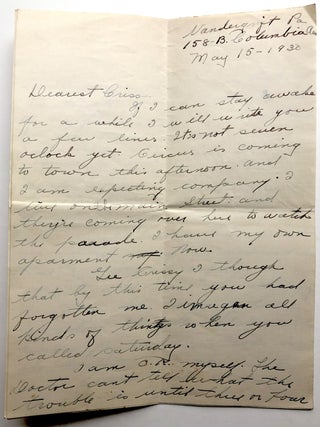 Vandergrift Pa
158-B. Columbia
May 15-1930
Dearest Criss
If I can stay awake
for a while I will write you
a few lines. Its not seven
oclock yet Circus is coming
to town this afternoon. and
I am expecting company. I
live on main Street and
they're coming over here to watch
the parade. I have my own
aparment now.
Gee Crissy I though
that by this time you had
forgotten me I all
kinds of things when you
called Saturday.
I am O.K. myself. The
Doctor can't tell what the
trouble is until three or four